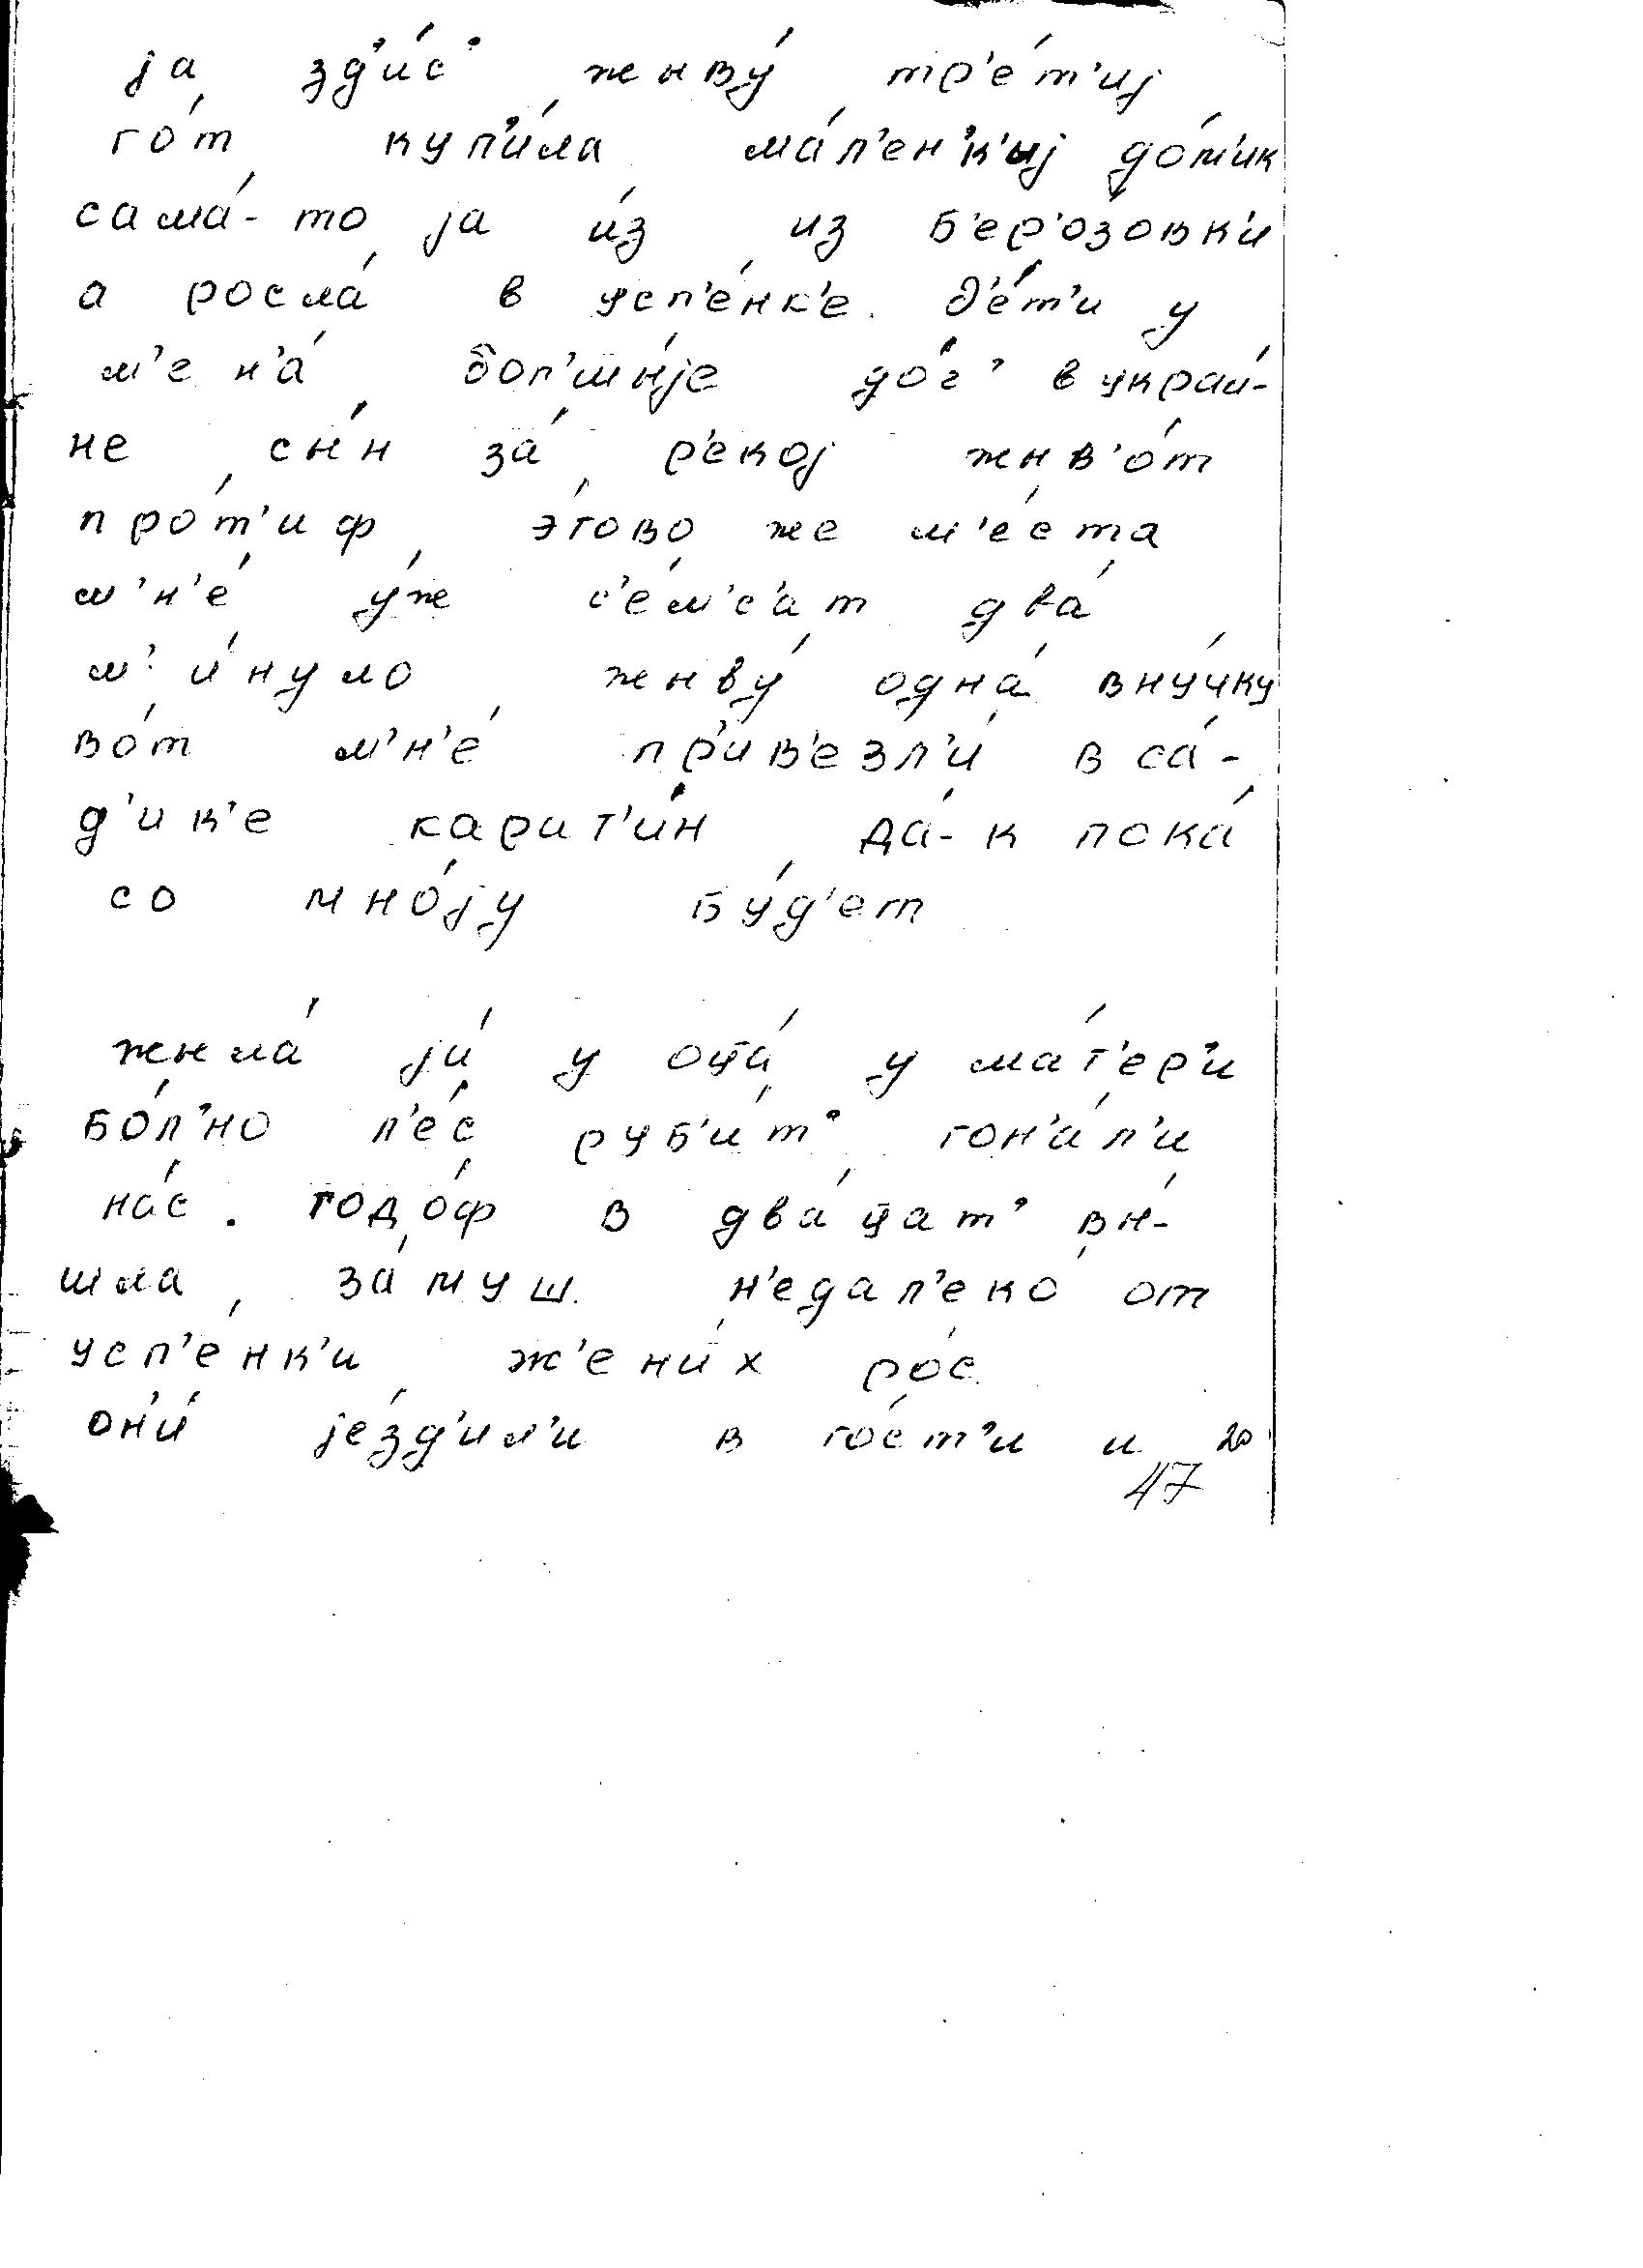 ја зд'и́с' жывý тр'е́т'иј
го́т куп'и́ла ма́л'ен'к'иј до́м'ик
сама́-то ја и́з из б'ер'о́зовк'и
а росла́ в усп'е́нк'е. д'е́т'и у
м'ен'а́ бол'шы́је до́ч' в украи́-
не сы́н за́ р'екој жыв'о́т
про́т'иф э́тово же м'е́ста
м'н'е́ у́ж с'е́м'с'ат два́
м'и́нуло жыву́ одна́ вну́чку
во́т м'н'е́ пр'ив'езл'и́ в са́-
д'ик'е карит'и́н да́-к пока́
со мно́ју бу́д'ет
жыла́ ја́ у оца́ у ма́т'ер'и
бо́л'но л'е́с руб'и́т' гон'а́л'и
на́с. годо́ф в два́цат' вы́-
шла за́муш. н'едал'еко́ от
усп'е́нк'и ж'ени́х ро́с.
он'и́ је́зд'ил'и в го́ст'и и
47